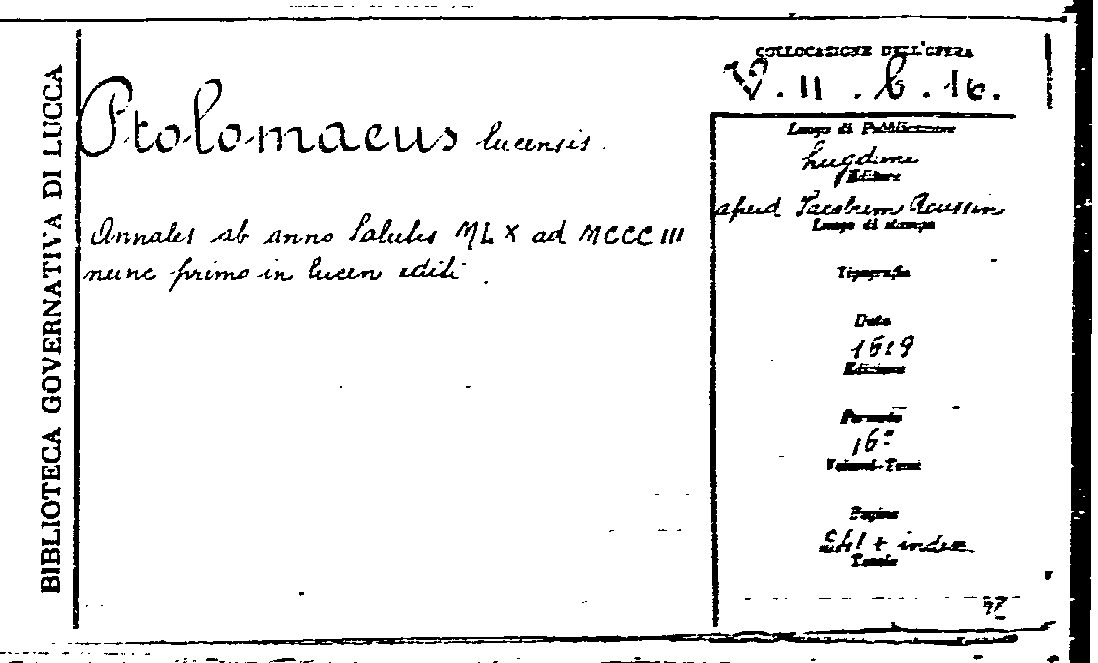 BIBLIOTECA GOVERNATIVA DI LUCCA
Ptolomaeus lucensis.
Annales ab anno Salutis MLX ad MCCCIII
nunc primo in lucem editi.
COLLOCAZIONE DELL'OPERA
II . b . 16.
Luogo di Pubblicazione
Lugduni
Editore
apud Jacobum Roussin
Luogo di stampa
Tipografia
Data
1619
Edizione
Formato
16°
Volumi-Tomi
Pagine
+ index
Tavole